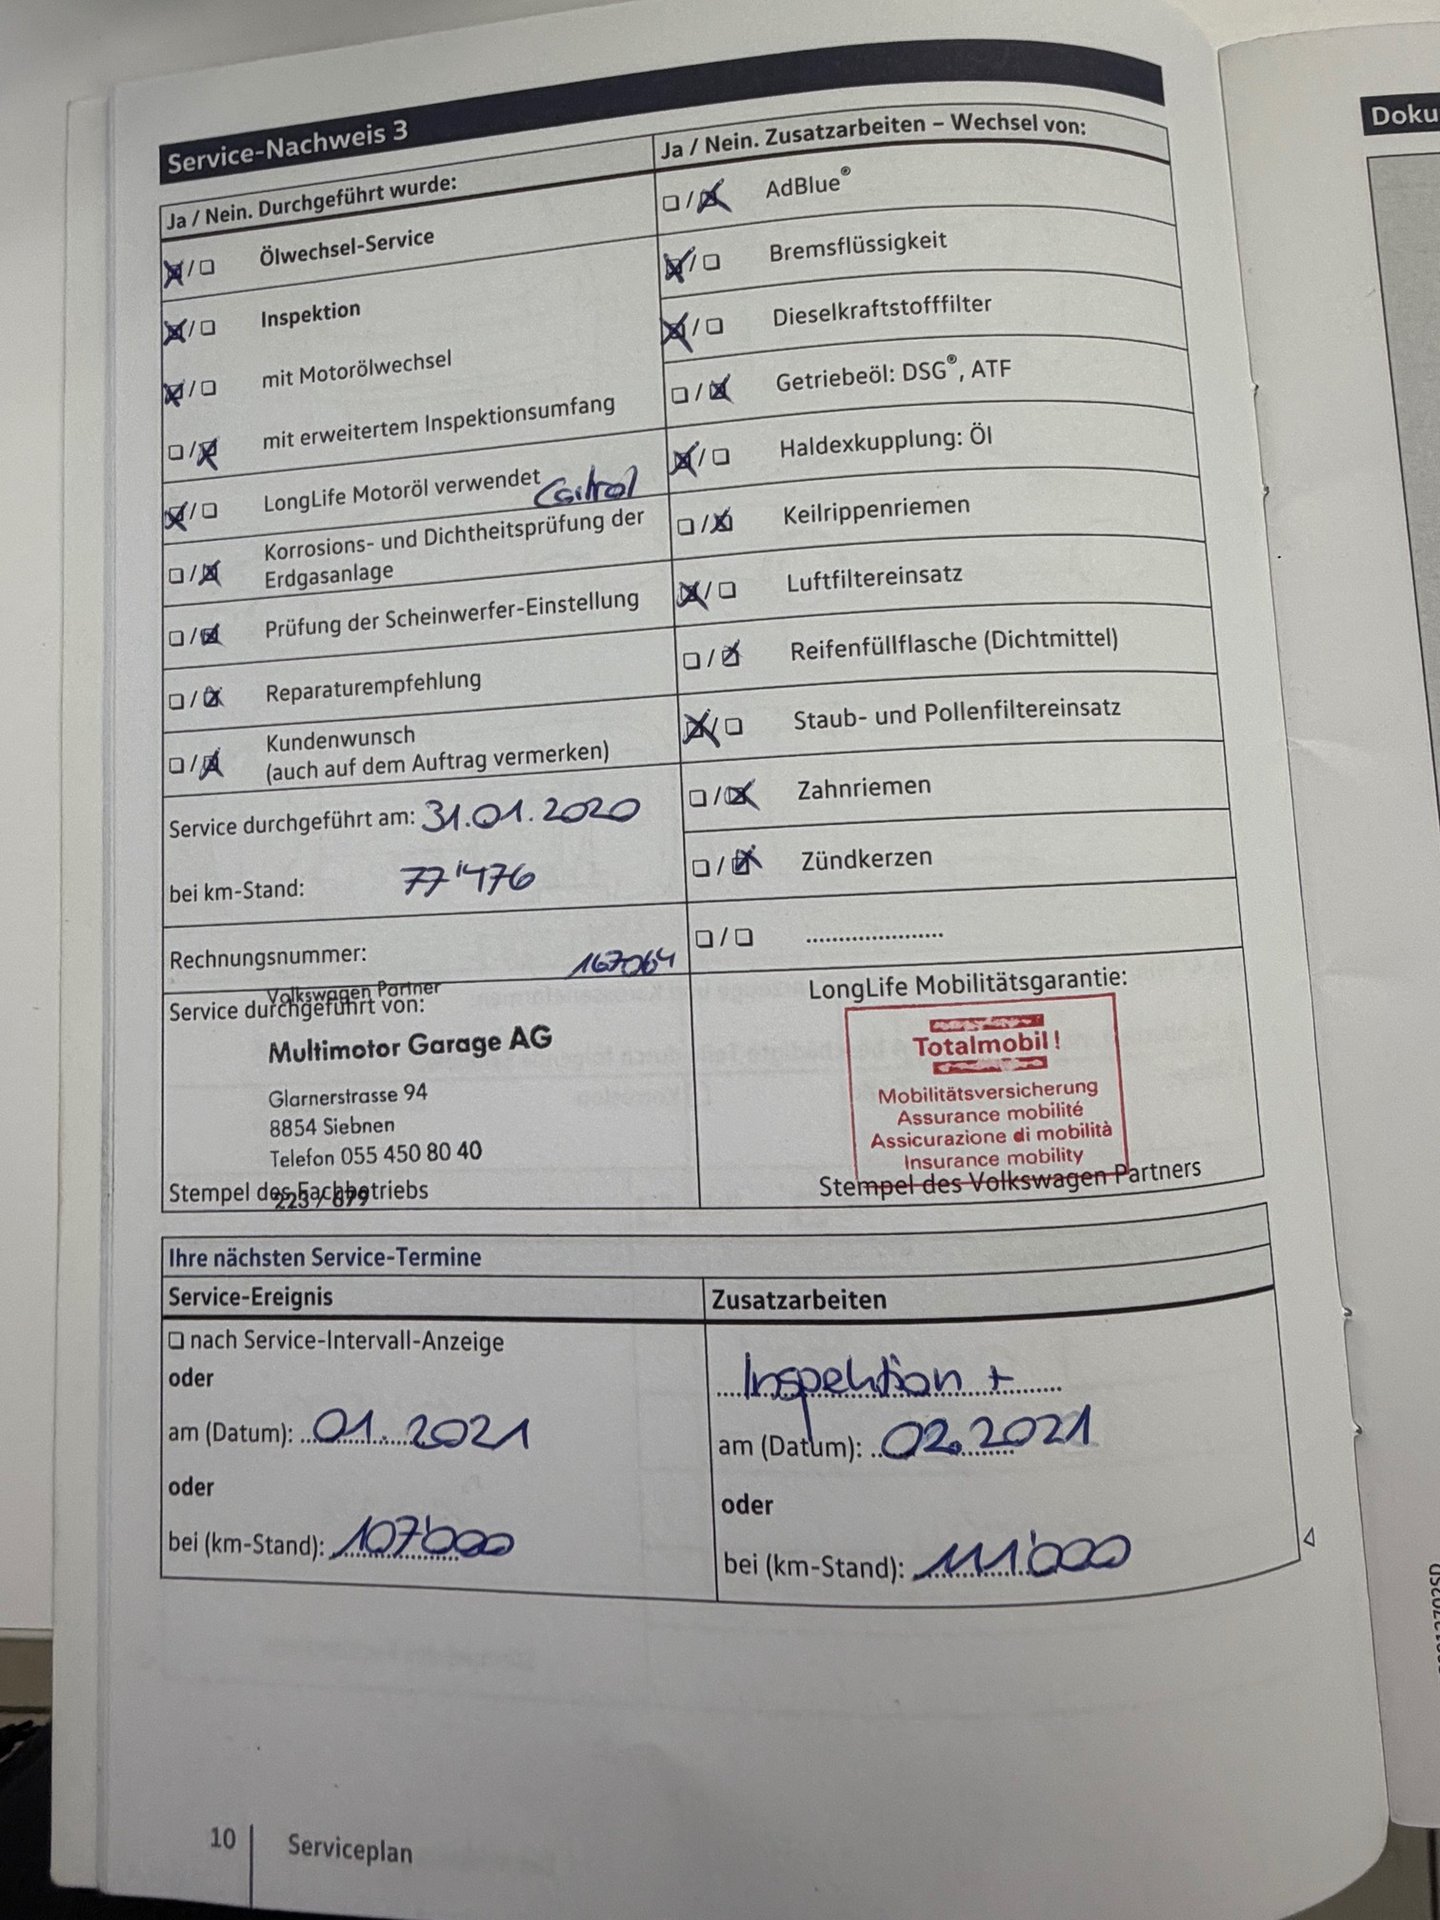 Service-Nachweis 3
Ja / Nein. Durchgeführt wurde:
Ölwechsel-Service
Inspektion
mit Motorölwechsel
mit erweitertem Inspektionsumfang
LongLife Motoröl verwendet
Korrosions- und Dichtheitsprüfung der
Erdgasanlage
Prüfung der Scheinwerfer-Einstellung
Reparaturempfehlung
Kundenwunsch
(auch auf dem Auftrag vermerken)
Service durchgeführt am: 31.01.2020
bei km-Stand: 77'476
Rechnungsnummer: 167064
Volkswagen Partner
Service durchgeführt von:
Multimotor Garage AG
Glarnerstrasse 94
8854 Siebnen
Telefon 055 450 80 40
Stempel des Fachbetriebs
223 / 679
Ja / Nein. Zusatzarbeiten – Wechsel von:
AdBlue®
Bremsflüssigkeit
Dieselkraftstofffilter
Getriebeöl: DSG®, ATF
Haldexkupplung: Öl
Keilrippenriemen
Luftfiltereinsatz
Reifenfüllflasche (Dichtmittel)
Staub- und Pollenfiltereinsatz
Zahnriemen
Zündkerzen
.....................
LongLife Mobilitätsgarantie:
Totalmobil!
Mobilitätsversicherung
Assurance mobilité
Assicurazione di mobilità
Insurance mobility
Stempel des Volkswagen Partners
Ihre nächsten Service-Termine
Service-Ereignis
nach Service-Intervall-Anzeige
oder
am (Datum): 01.2021
oder
bei (km-Stand): 107'000
Zusatzarbeiten
Inspektion +
am (Datum): 02.2021
oder
bei (km-Stand): 111'000
10
Serviceplan
Doku